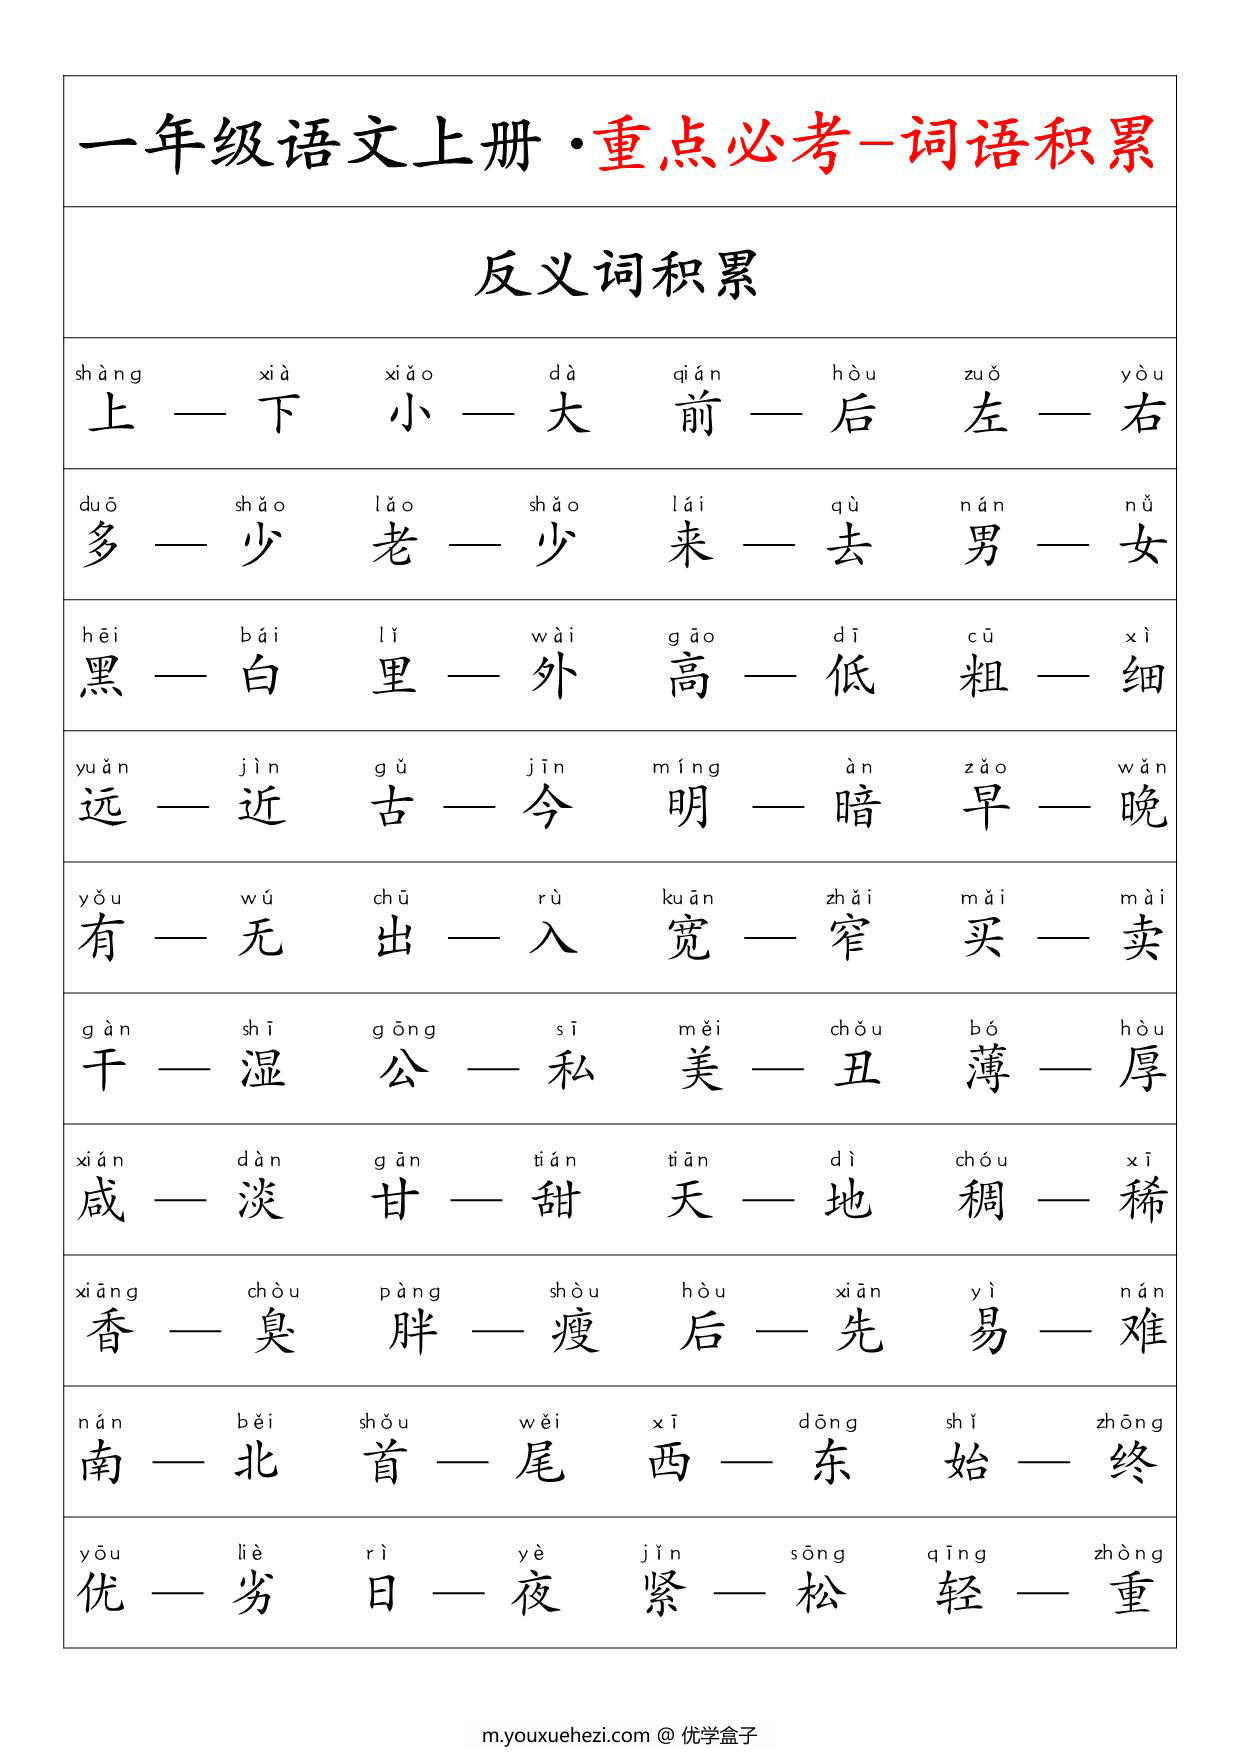 一年级语文上册·重点必考-词语积累
反义词积累
shàng xià xiǎo dà qián hòu zuǒ yòu
上 — 下 小 — 大 前 — 后 左 — 右
duō shǎo lǎo shǎo lái qù nán nǚ
多 — 少 老 — 少 来 — 去 男 — 女
hēi bái lǐ wài gāo dī cū xì
黑 — 白 里 — 外 高 — 低 粗 — 细
yuǎn jìn gǔ jīn míng àn zǎo wǎn
远 — 近 古 — 今 明 — 暗 早 — 晚
yǒu wú chū rù kuān zhǎi mǎi mài
有 — 无 出 — 入 宽 — 窄 买 — 卖
gàn shī gōng sī měi chǒu bó hòu
干 — 湿 公 — 私 美 — 丑 薄 — 厚
xián dàn gān tián tiān dì chóu xī
咸 — 淡 甘 — 甜 天 — 地 稠 — 稀
xiāng chòu pàng shòu hòu xiān yì nán
香 — 臭 胖 — 瘦 后 — 先 易 — 难
nán běi shǒu wěi xī dōng shǐ zhōng
南 — 北 首 — 尾 西 — 东 始 — 终
yōu liè rì yè jǐn sōng qīng zhòng
优 — 劣 日 — 夜 紧 — 松 轻 — 重
m.youxuehezi.com @ 优学盒子